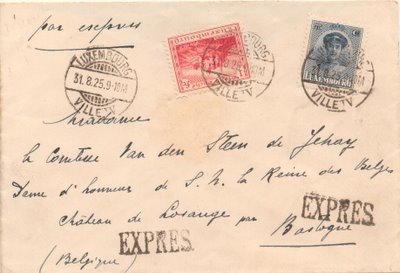 par express
LUXEMBOURG
31.8.25.9-10M
VILLE
LUXEMBOURG
Madame
la Comtesse Van den Steen de Jehay
Dame d'honneur de S. M. la Reine des Belges
Château de Losange par
Bastogne
(Belgique)
EXPRES
EXPRES